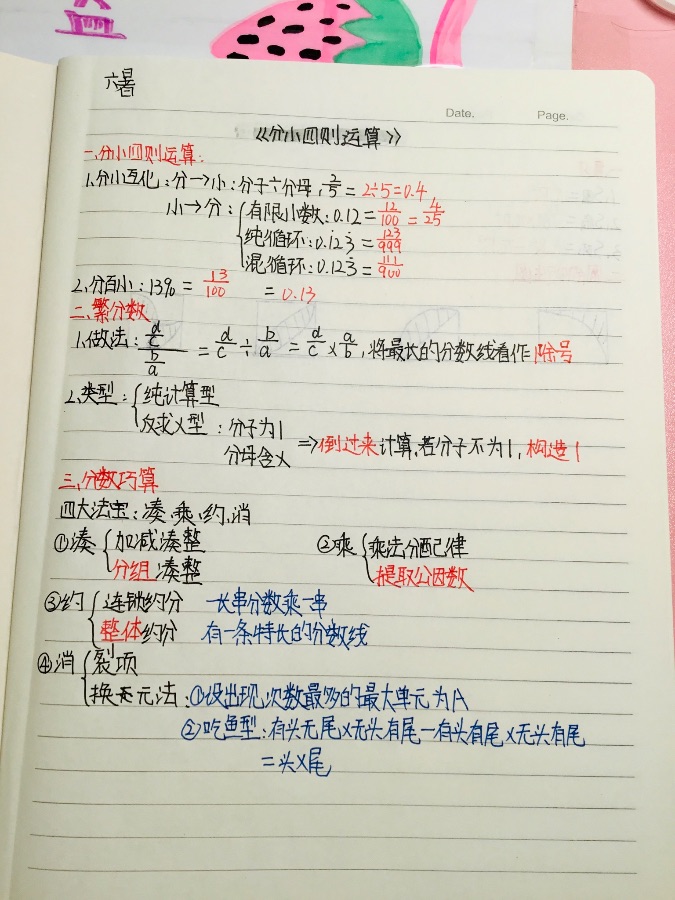 六暑
Date. Page.
《分小四则运算》
一、分小四则运算:
1、分小互化:分→小:分子÷分母,2/5=2÷5=0.4
小→分:{有限小数:0.12=12/100=4/25
纯循环:0.1̇23̇=123/999
混循环:0.123̇=111/900
2、分百小:13%=13/100=0.13
二、繁分数
1、做法:(d/c)/(b/a)=d/c÷b/a=d/c×a/b,将最长的分数线看作除号
2、类型:{纯计算型
反求x型:分子为1
分母含x
⇒倒过来计算,若分子不为1,构造1
三、分数巧算
四大法宝:凑、乘、约、消
①凑{加减凑整 ②乘{乘法分配律
分组凑整 提取公因数
③约{连锁约分 一长串分数乘一串
整体约分 有一条特长的分数线
④消{裂项
换元法:①设出现次数最多的最大单元为A
②吃鱼型:有头无尾×无头有尾-有头有尾×无头有尾
=头×尾